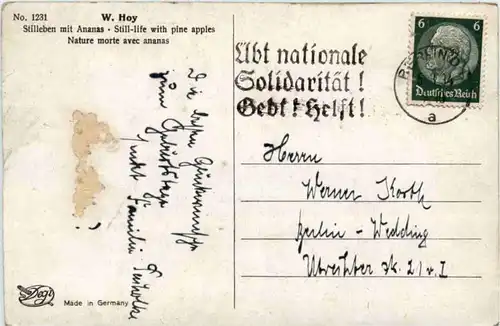 No. 1231 W. Hoy
Stilleben mit Ananas · Still-life with pine apples
Nature morte avec ananas
Die besten Glückwünsche
zum Geburtstage
Familie
Made in Germany
Übt nationale
Solidarität!
Gebt! Helft!
6 6
Deutsches Reich
a
Herrn
Werner
Berlin - Wedding
Utrechter Str. 21 v. I